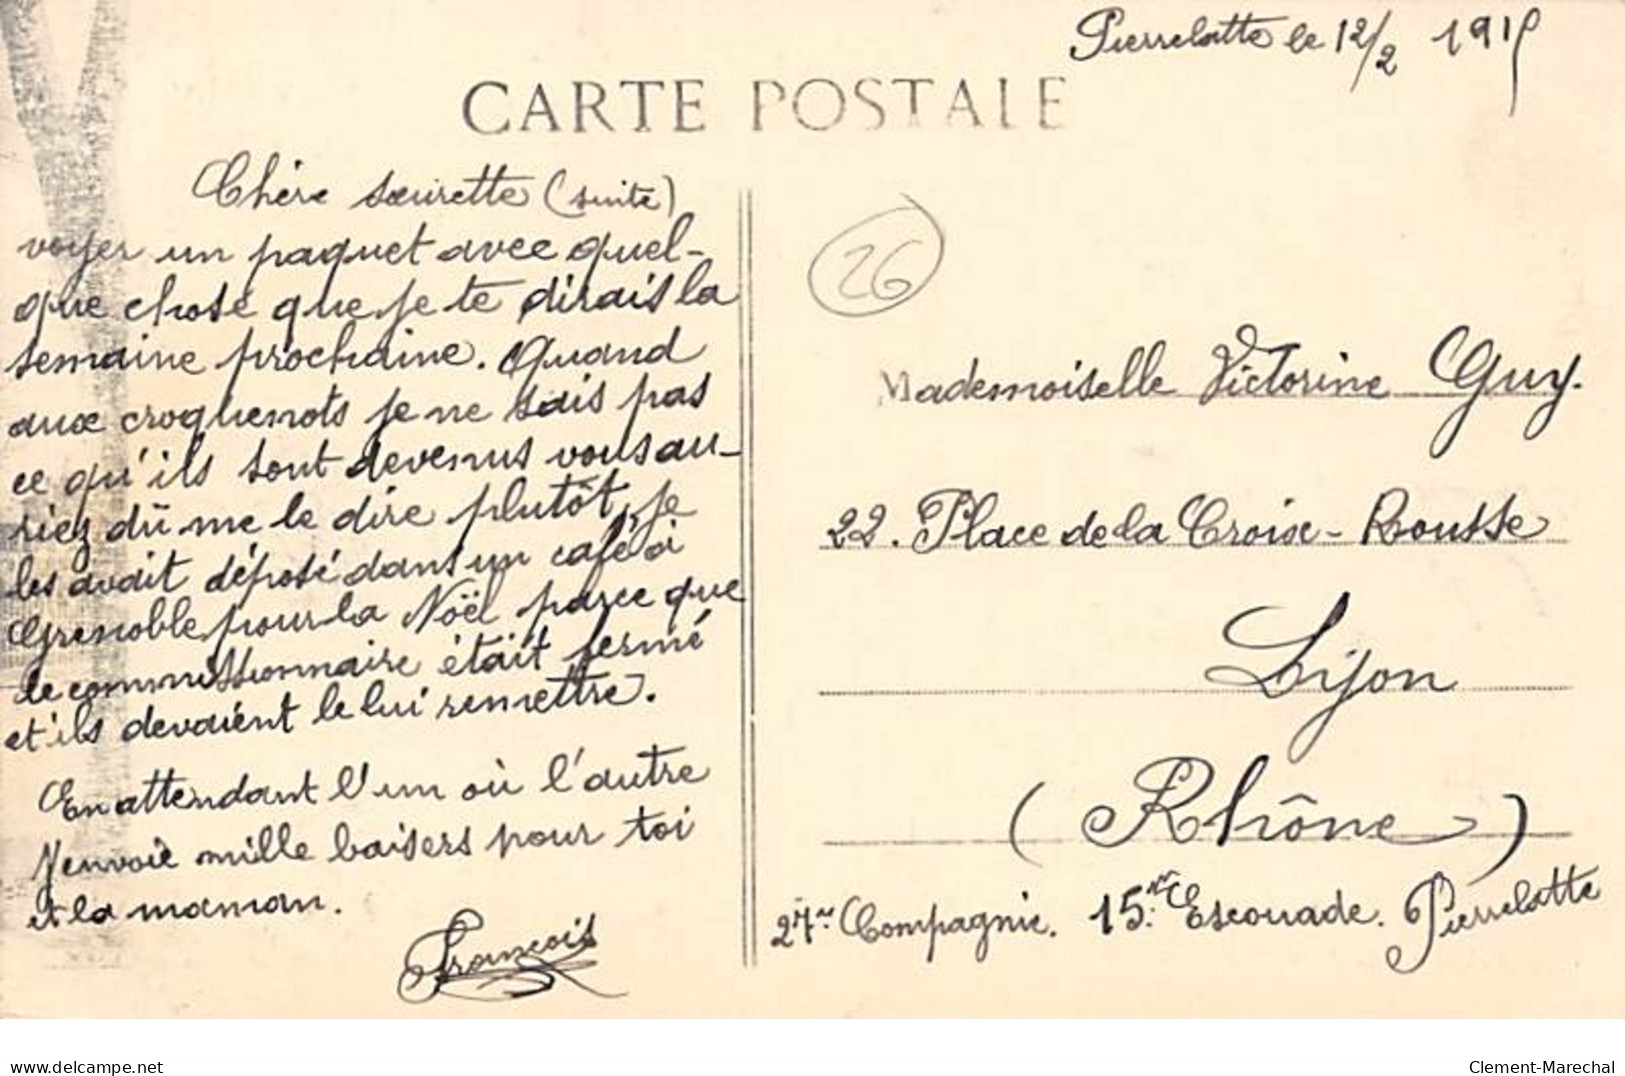 Pierrelatte le 12/2 1915
CARTE POSTALE
Chère sœurette (suite)
voyer un paquet avec quel-
que chose que je te dirais la
semaine prochaine. Quand
aux croquenots je ne sais pas
ce qu'ils sont devenus vous au-
riez dû me le dire plutôt, je
les avait déposé dans un café à
Grenoble pour la Noël parce que
le commissionnaire était fermé
et ils devaient le lui remettre.
En attendant l'un où l'autre
J'envoie mille baisers pour toi
et la maman.
François
26
Mademoiselle Victorine Guy.
22. Place de la Croix-Rousse
Lyon
(Rhône)
27me Compagnie. 15me Escouade. Pierrelatte
www.delcampe.net
Clement-Marechal